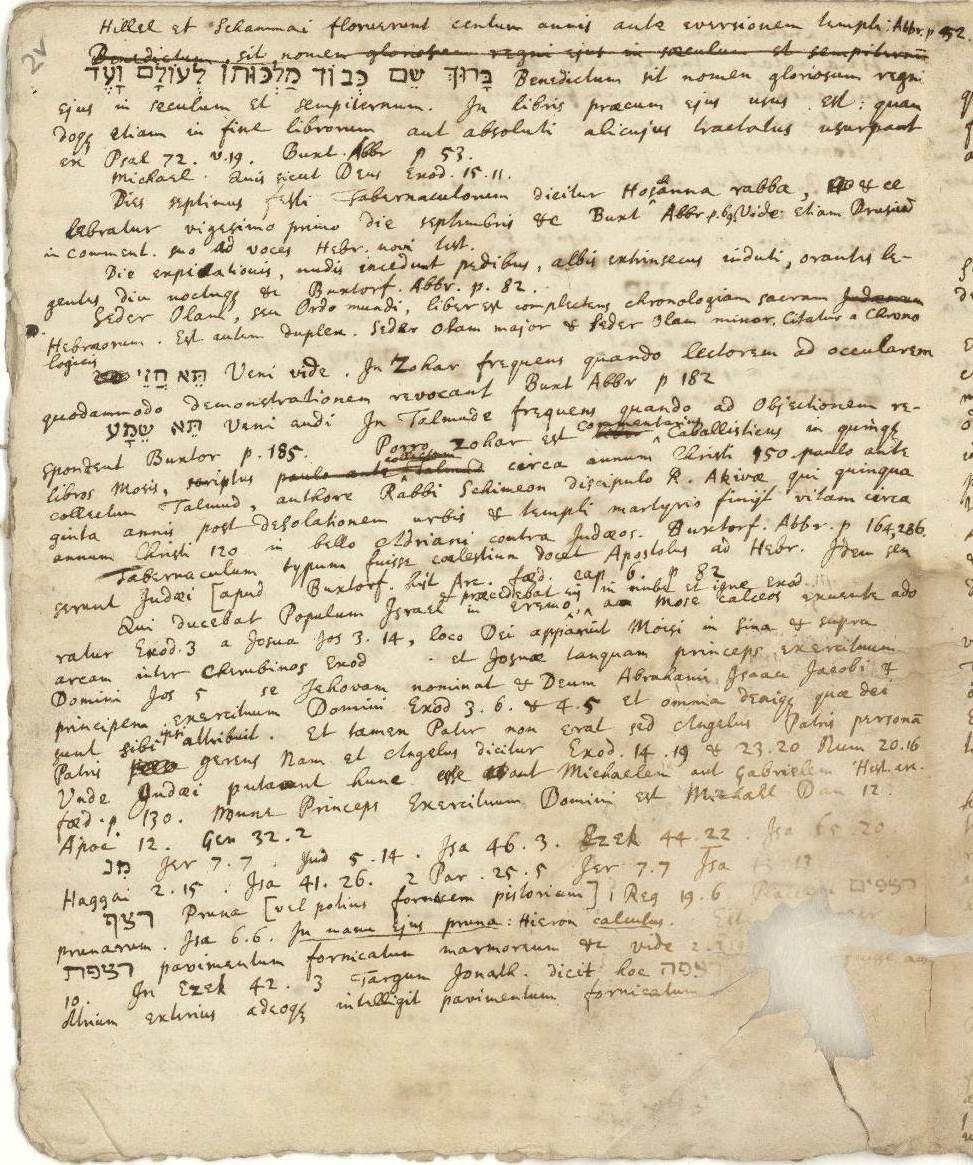 2v
Hillel et Schammai floruerunt centum annis ante eversionem templi. Abbr. p 52.
Benedictum sit nomen gloriosum regni ejus in sæculum et sempiternū
בָּרוּךְ שֵׁם כְּבוֹד מַלְכוּתוֹ לְעוֹלָם וָעֶד Benedictum sit nomen gloriosum regni
ejus in sæculum et sempiternum. In libris præcum ejus usus est: quan
doqȝ etiam in fine librorum aut absoluti alicujus tractatus usurpant
ex Psal 72. v.19. Buxt. Abbr p 53.
Michael. Quis sicut Deus Exod. 15.11.
Dies septimus festi Tabernaculorum dicitur Hosanna rabba, & ce
lebratur vigesimo primo die septembris &c Buxt Abbr. p. 69. Vide etiam Drusiū
in comment. suo ad voces Hebr. novi test.
Die expiationis, nudis incedunt pedibus, albis extrinsecus induti, orantes le-
gentes, diu noctuqȝ &c Buxtorf. Abbr. p. 82.
Seder Olam, seu Ordo mundi, liber est complectens chronologiam sacram Judæorum
Hebræorum. Est autem duplex. Seder Olam major & Seder Olam minor. Citatur a Chrono
logicis
תָּא חֲזֵי Veni vide. In Zohar frequens quando lectorem ad occularem
quodammodo demonstrationem revocant Buxt Abbr p 182
תָּא שְׁמַע Veni audi In Talmude frequens quando ad Objectionem re-
spondent Buxtor p. 185. Porro Zohar est commentarius Caballisticus in quinqȝ
libros Mosis, scriptus paulo ante Talmud circa annum Christi 150 paulo ante
collectum Talmud, authore Rabbi Schimeon discipulo R. Akivæ qui quinqua
ginta annis post desolationem urbis & templi martyrio finijt vitam circa
annum Christi 120 in bello Adriani contra Judæos. Buxtorf. Abbr. p 164, 236.
Tabernaculum typum fuisse cœlestium docet Apostolus ad Hebr. Idem sen
serunt Judæi [apud Buxtorf. hist Arc. fœd. cap 6. p 82
Qui ducebat Populum Israel & præcedebat eū in eremo, in nube et igne Exod a Mose calceos exuente ado
ratur Exod. 3 a Josua Jos 3. 14, loco Dei apparuit Mosi in Sina & supra
arcam inter Cherubinos Exod . et Josuæ tanquam princeps exercituum
Domini Jos 5 se Jehovam nominat & Deum Abrahami Isaaci Jacobi &
principem exercituum Domini Exod 3. 6. & 4. 5 et omnia deniqȝ quæ dei
sunt sibi ipsi attribuit. Et tamen Pater non erat sed Angelus Patris personā
Patris gerens Nam et Angelus dicitur Exod. 14. 19 & 23. 20 Num 20.16
Unde Judæi putarunt hunc esse aut Michaelem aut Gabrielem Hist arc.
fœd. p. 130. Nunc Princeps Exercituum Domini est Michael Dan 12.
Apoc 12. Gen 32. 2
מן Jer 7. 7. Jud 5. 14. Isa 46. 3. Ezek 44. 22. Isa 65. 20.
Haggai 2. 15. Isa 41. 26. 2 Par. 25. 5 Jer 7.7 Isa
רצף Pruna [vel potius fornacem pistoriam] 1 Reg 19. 6 רצפים
prunarum. Isa 6.6. In manu ejus pruna: Hieron calculus.
רצפת pavimentum fornicatum marmoreum &c vide 2.
10. In Ezek 42. 3 Targum Jonath. dicit hoc רצפה
Atrium exterius adeoqȝ intelligit pavimentum fornicatum